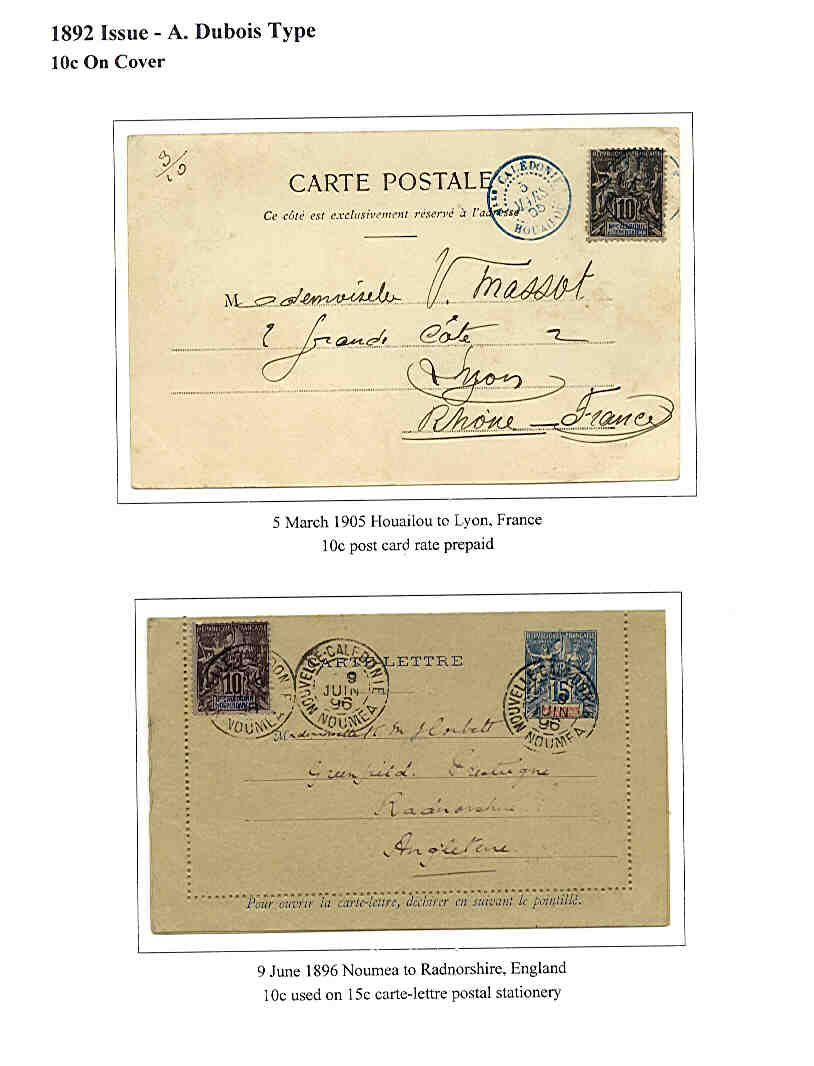 1892 Issue - A. Dubois Type
10c On Cover
3/10
CARTE POSTALE
Ce côté est exclusivement réservé à l'adresse
CALEDONIE
5
MARS
05
HOUAILOU
10
Mademoiselle V. Massot
2 Grande Côte 2
Lyon
Rhône - France
5 March 1905 Houailou to Lyon, France
10c post card rate prepaid
REPUBLIQUE FRANÇAISE
10
NOUMEA
NOUVELLE-CALEDONIE
9
JUIN
96
NOUMEA
CARTE-LETTRE
REPUBLIQUE FRANÇAISE
15
NOUVELLE-CALEDONIE
JUIN
96
NOUMEA
Mademoiselle K. M. J. Corbett
Greenfield. Presteigne
Radnorshire
Angleterre
Pour ouvrir la carte-lettre, déchirer en suivant le pointillé.
9 June 1896 Noumea to Radnorshire, England
10c used on 15c carte-lettre postal stationery